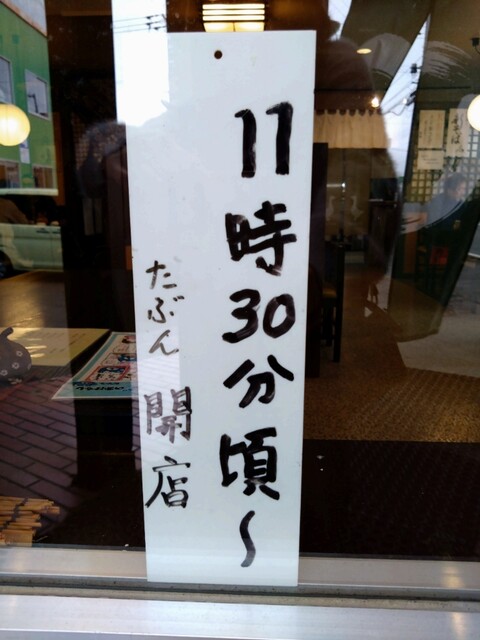 11時30分頃～
たぶん 開店